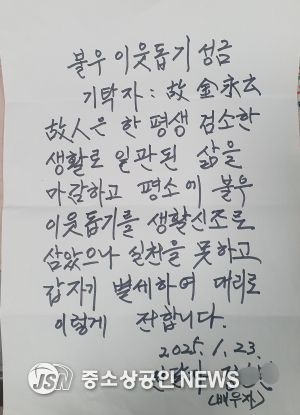 불우 이웃돕기 성금
기탁자 : 故 金永玄
故人은 한 평생 검소한
생활로 일관된 삶을
마감하고 평소에 불우
이웃돕기를 생활신조로
삼았으나 실천을 못하고
갑자기 별세하여 대리로
이렇게 전합니다.
2025. 1. 23.
(배우자)
JSN 중소상공인NEWS